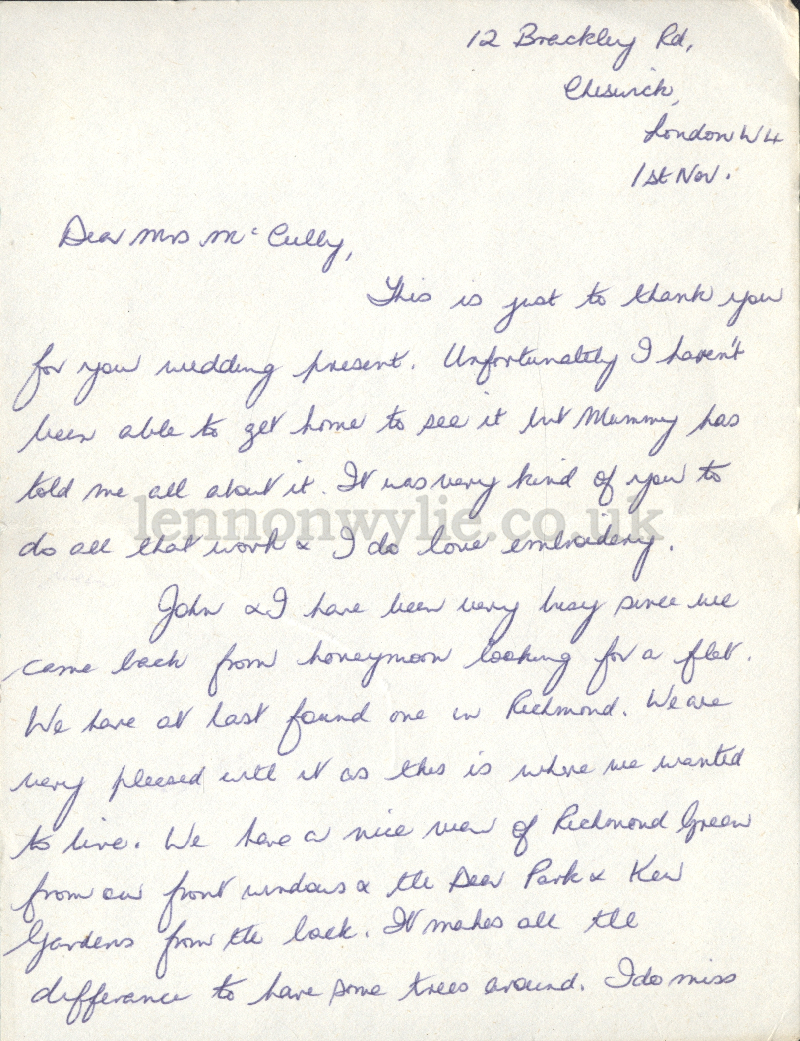 12 Brackley Rd,
Chiswick,
London W4
1st Nov.
Dear Mrs McCully,
This is just to thank you
for your wedding present. Unfortunately I haven't
been able to get home to see it but Mummy has
told me all about it. It was very kind of you to
lennonwylie.co.uk
do all that work & I do love embroidery.
John & I have been very busy since we
came back from honeymoon looking for a flat.
We have at last found one in Richmond. We are
very pleased with it as this is where we wanted
to live. We have a nice view of Richmond Green
from our front windows & the Deer Park & Kew
Gardens from the back. It makes all the
differance to have some trees around. I do miss